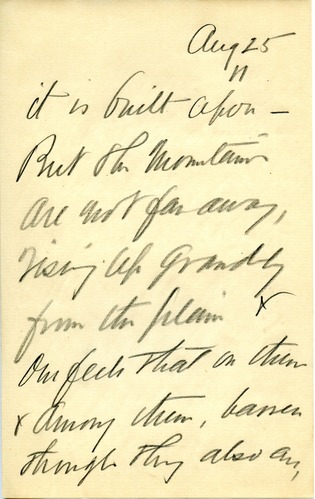 Aug 25
11
it is built upon —
But the Mountains
are not far away,
rising up grandly
from the plain x
One feels that on them
x among them, barren
though they also are,